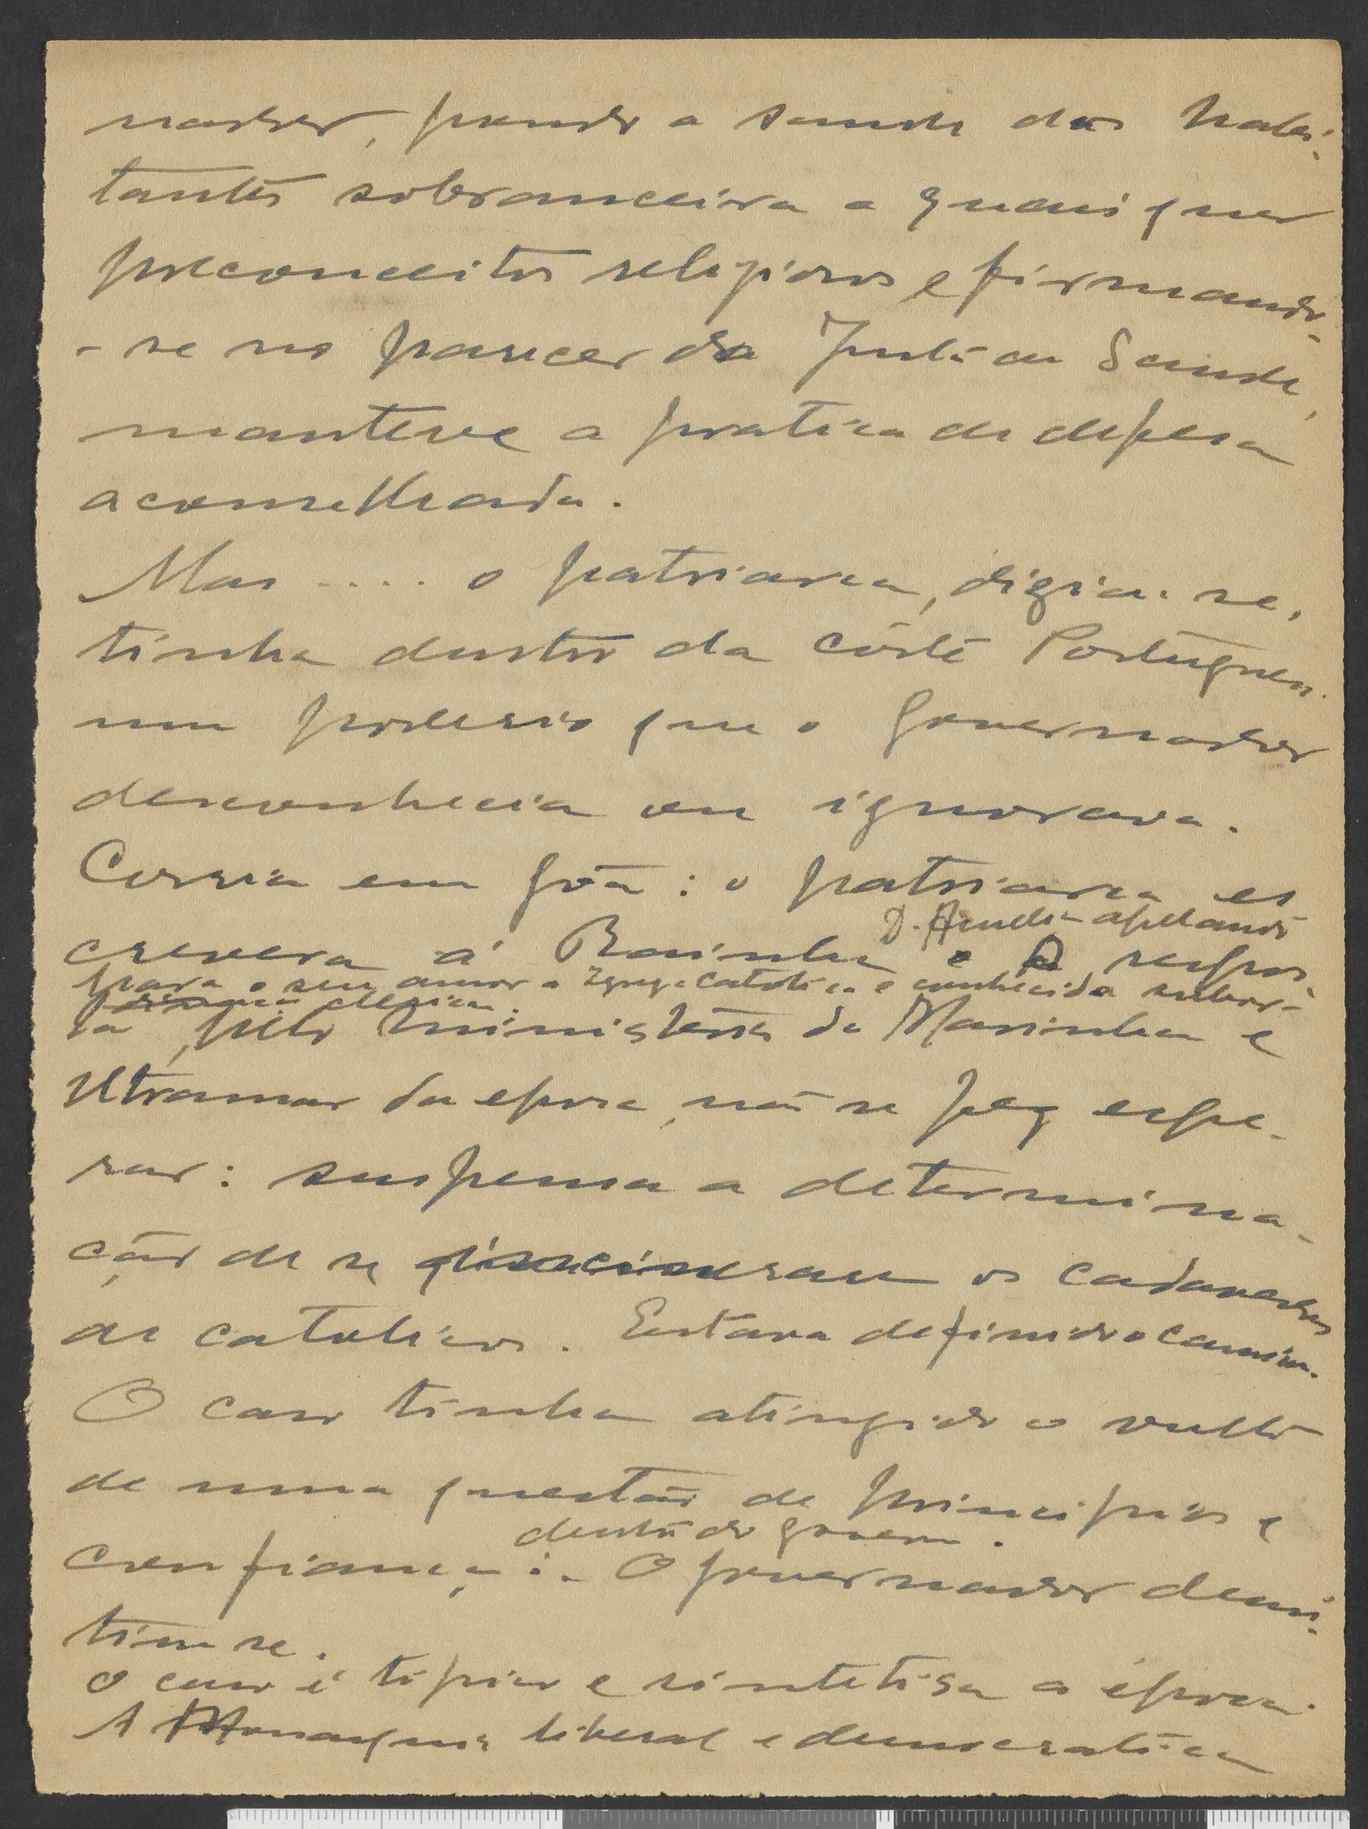 nador, pondo a saude dos habi-
tantes sobranceira a quaisquer
preconceitos religiosos e firmando-
-se no parecer da Junta de Saude,
manteve a pratica de defesa
aconselhada.
Mas .... o patriarca, dizia-se,
tinha dentro da côrte Portuguesa
um poderio que o Governador
desconhecia ou ignorava.
Corria em Gôa: o patriarca es
D. Amelia apelando
crevera á Rainha e a respos-
para o seu amor a Igreja Catolica e conhecida
ta, pelo ministerio da Marinha e
Ultramar da epoca, não se fez espe-
rar: suspensa a determina-
ção de se incinerarem os cadaveres
de catolicos. Estava definido o caminho.
O caso tinha atingido o vulto
de uma questão de principios e
dentro do governo.
confiança. O governador demi-
tiu-se.
O caso é tipico e sintetisa a época.
A Monarquia liberal e democratica